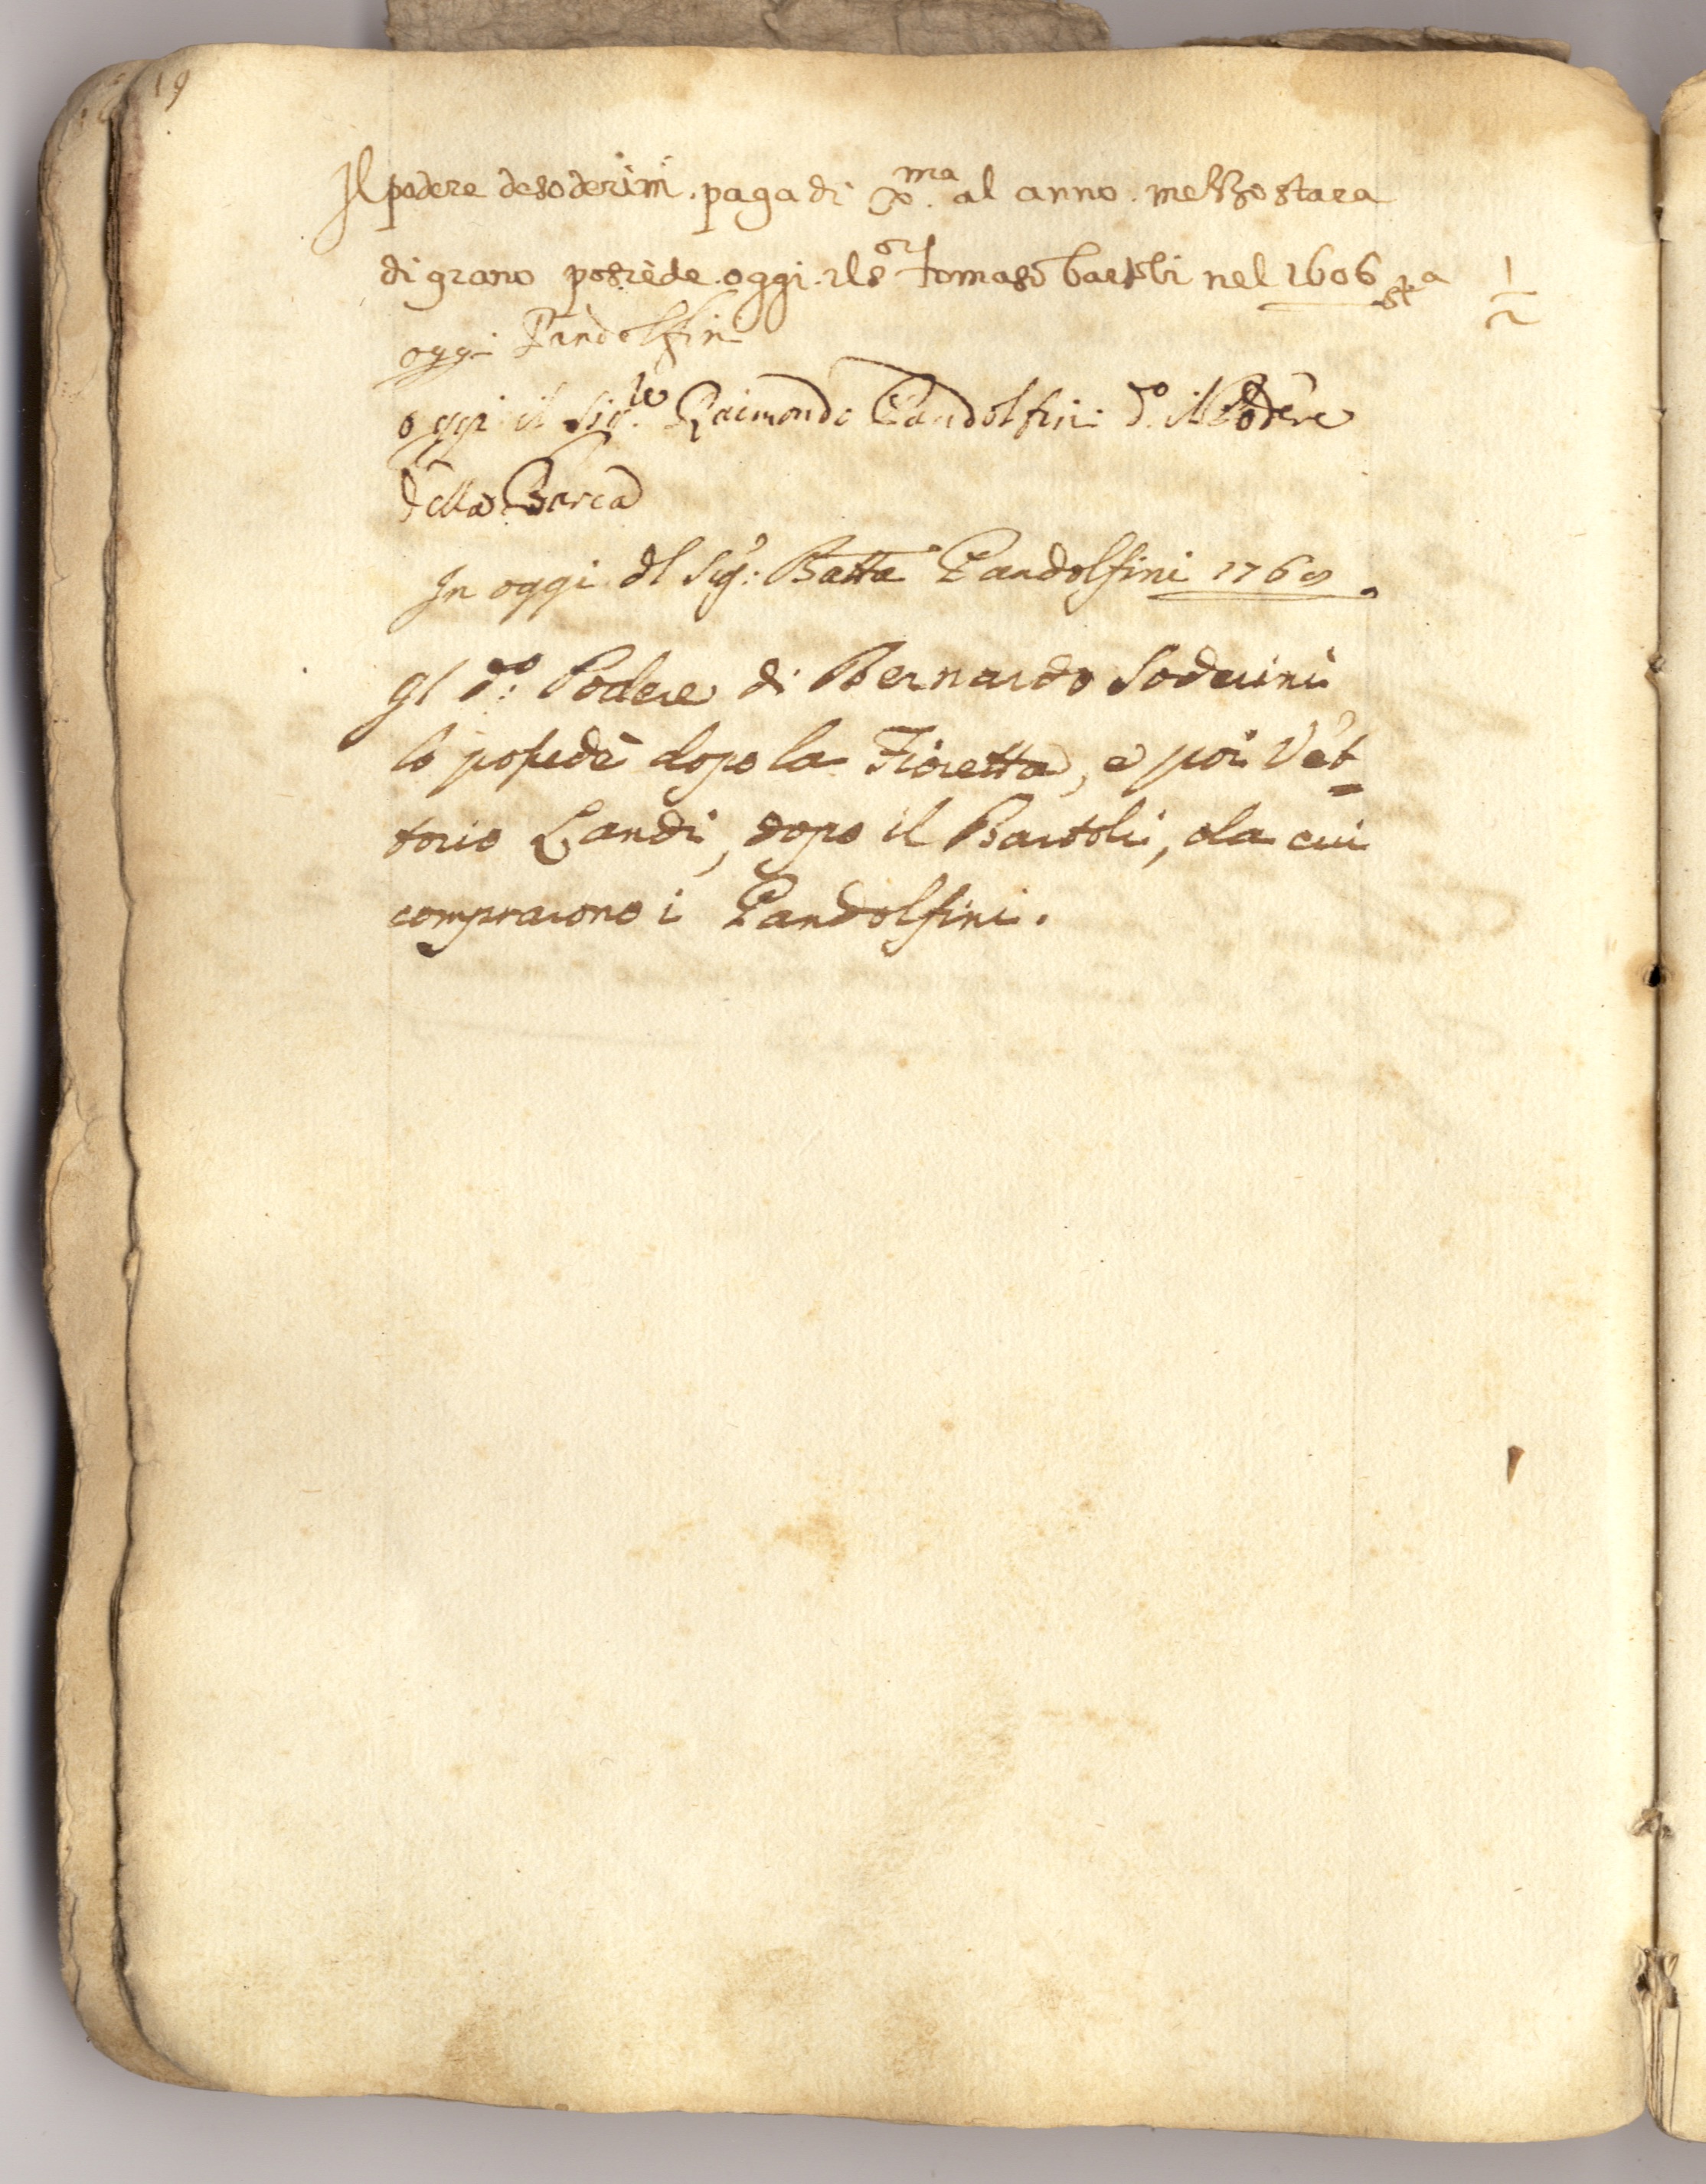 19
Il podere desoderini. paga di x.ma al anno. mezzo stara
di grano possede. oggi. il s.or tomaso bartoli nel 1606 sta 1/2
oggi Pandolfini
oggi il Sig.re Raimondo Pandolfini d.o il Podere
della Barca
In oggi il Sig.e: Batta Pandolfini 1768.
Il d.o: Podere di Bernardo Soderini
lo possedè dopo la Fioretta, e poi Vet=
torio Landi, dopo il Bartoli, da cui
comprarono i Pandolfini.